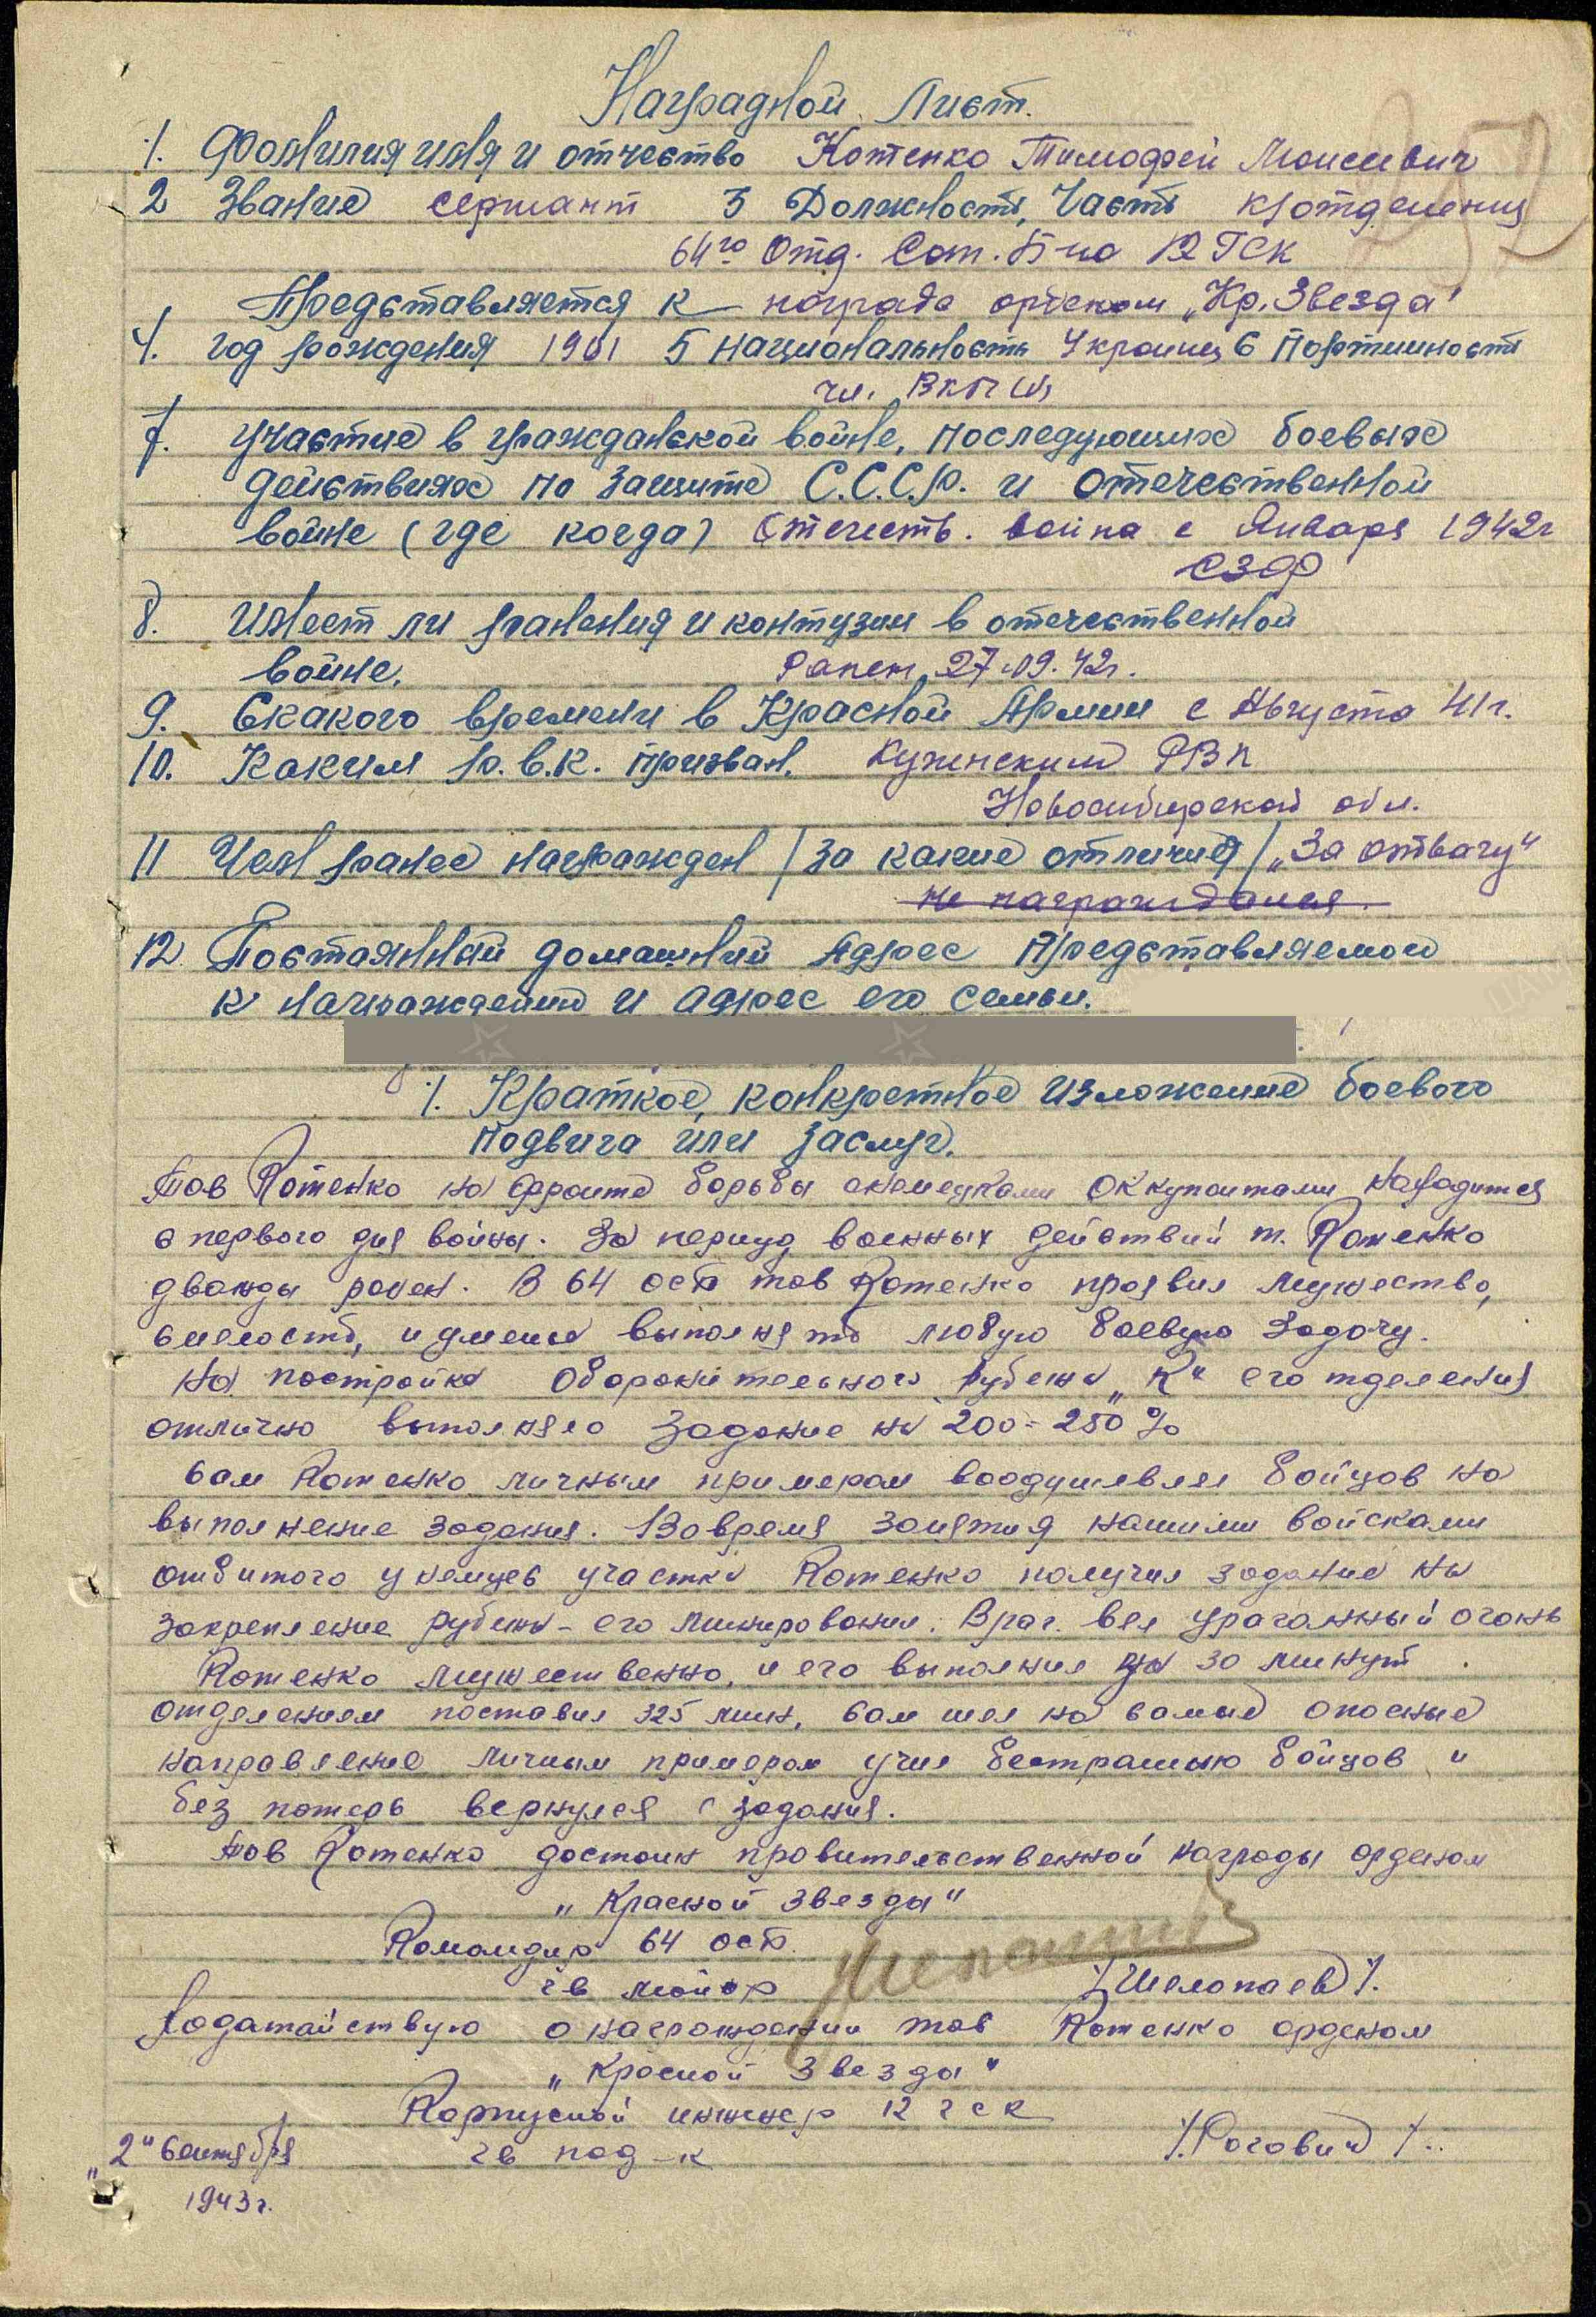 Наградной Лист.
1. Фамилия имя и отчество Котенко Тимофей Моисеевич
2 Звание сержант 3 Должность, Часть к/отделения
64го Отд. Сап. Б-на 12 ГСК
Представляется к награде орденом „Кр. Звезда"
4. год рождения 1901 5 национальность Украинец 6 Партийность
чл. ВКП(б)
7. Участие в гражданской войне, последующих боевых
действиях по защите С.С.С.Р. и отечественной
войне (где когда) Отечеств. война с Января 1942г
СЗФ
8. Имеет ли ранения и контузии в отечественной
войне. Ранен 27.09.42г.
9. Скакого времени в Красной Армии с Августа 41г.
10. Каким р.в.к. призван. РВК
Новосибирской обл.
11 Чем ранее награжден /за какие отличия/ „За отвагу"
не награждался.
12 Постоянный домашний Адрес Представляемого
к награждению и адрес его семьи.
1. Краткое, конкретное изложение боевого
подвига или заслуг.
Тов Котенко на фронте борьбы снемецкими оккупантами находится
с первого дня войны. За период военных действий т. Котенко
дважды ранен. В 64 осб тов Котенко проявил мужество,
смелость, и умение выполнять любую боевую задачу.
На постройке оборонительного рубежа „К" его тделения
отлично выполняло задание на 200-250%
Сам Котенко личным примером воодушевлял бойцов на
выполнение задания. Вовремя занятия нашими войсками
отбитого у немцев участка Котенко получил задание на
закрепление рубежа - его минирование. Враг. вел ураганный огонь
Котенко мужественно, и его выполнил за 30 минут.
отделением поставил 325 мин, сам шел на самые опасные
направление личным примером учил бестрашию бойцов и
без потерь вернулся с задания.
Тов Котенко достоин правительственной награды орденом
„Красной Звезды"
Командир 64 осб.
гв майор /Шелопаев/.
Ходатайствую о награждении тов Котенко орденом
„Красной Звезды"
Корпусной инженер 12 гск
„2" Сентября гв под-к /Рогович/..
1943г.
252